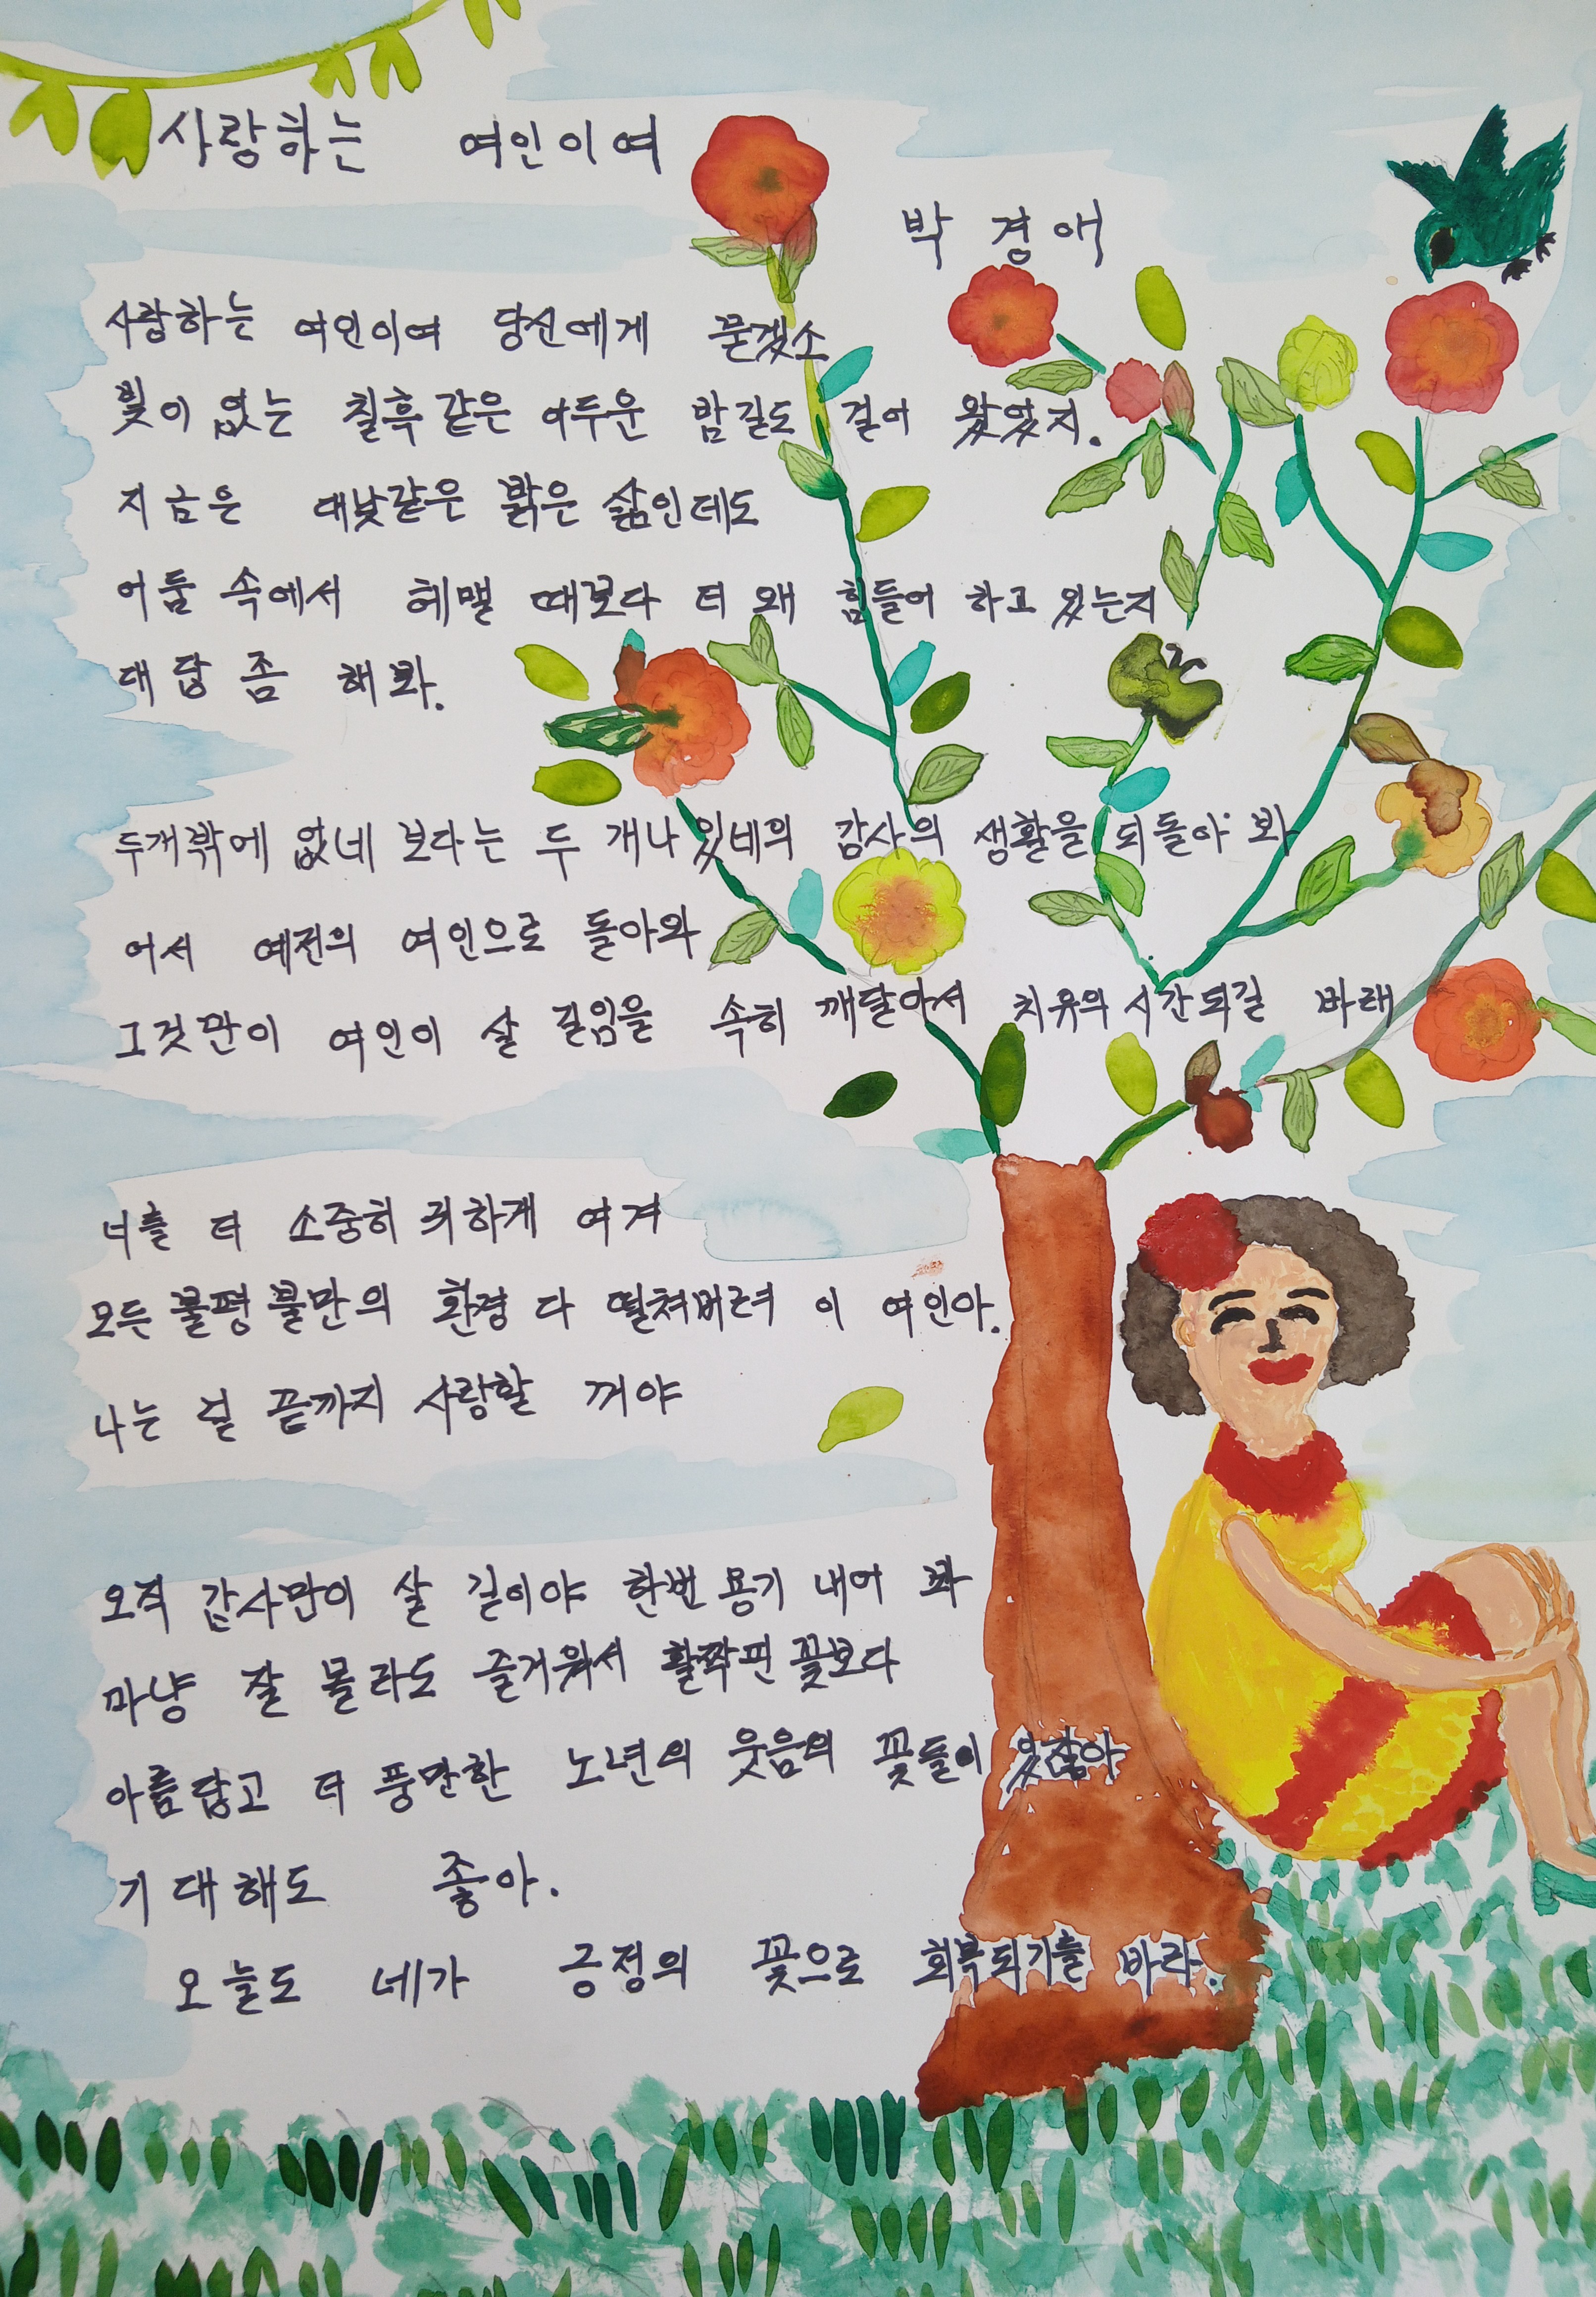 사랑하는 여인이여
박경애
사랑하는 여인이여 당신에게 묻겠소
빛이 없는 칠흑같은 어두운 밤길도 걸어 왔었지.
지금은 대낮같은 밝은 삶인데도
어둠 속에서 헤맬 때보다 더 왜 힘들어 하고 있는지
대답 좀 해봐.
두개밖에 없네 보다는 두 개나 있네의 감사의 생활을 되돌아 봐
어서 예전의 여인으로 돌아와
그것만이 여인이 살 길임을 속히 깨달아서 치유의 시간되길 바래
너를 더 소중히 귀하게 여겨
모든 불평불만의 환경 다 떨쳐버려 이 여인아.
나는 널 끝까지 사랑할 꺼야
오직 감사만이 살 길이야 한번 용기 내어 봐
마냥 잘 몰라도 즐거워서 활짝핀 꽃보다
아름답고 더 풍만한 노년의 웃음의 꽃들이 있잖아
기대해도 좋아.
오늘도 네가 긍정의 꽃으로 회복되기를 바라.